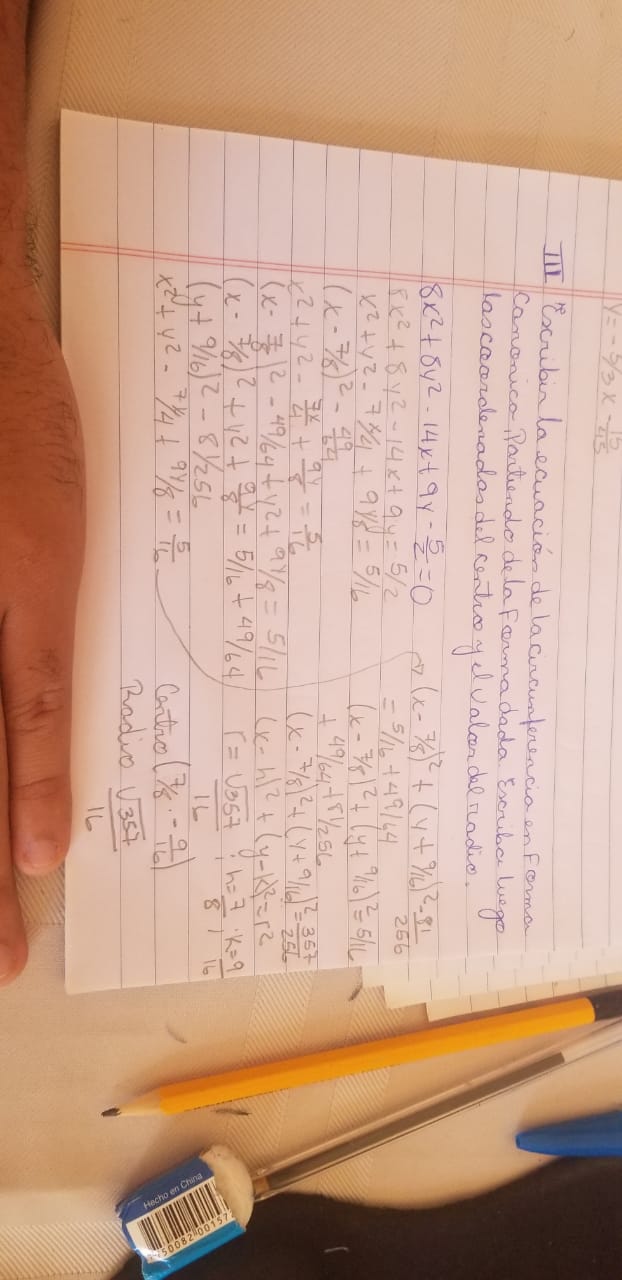 y = - 5/3 x - 15/45
III Escribir la ecuación de la circunferencia en Forma
Canonica, Partiendo de la Forma dada. Escriba luego
las coordenadas del centro y el Valor del radio.
8x² + 8y² - 14x + 9y - 5/2 = 0
8x² + 8y² - 14x + 9y = 5/2
x² + y² - 7x/4 + 9y/8 = 5/16
(x - 7/8)² - 49/64
x² + y² - 7x/4 + 9y/8 = 5/16
(x - 7/8)² - 49/64 + y² + 9y/8 = 5/16
(x - 7/8)² + y² + 9y/8 = 5/16 + 49/64
(y + 9/16)² - 81/256
x² + y² - 7x/4 + 9y/8 = 5/16
(x - 7/8)² + (y + 9/16)² - 81/256
= 5/16 + 49/64
(x - 7/8)² + (y + 9/16)² = 5/16
+ 49/64 + 81/256
(x - 7/8)² + (y + 9/16)² = 357/256
(x - h)² + (y - k)² = r²
r = √357/16 ; h = 7/8 ; k = 9/16
Centro (7/8 . - 9/16)
Radio √357/16
Hecho en China